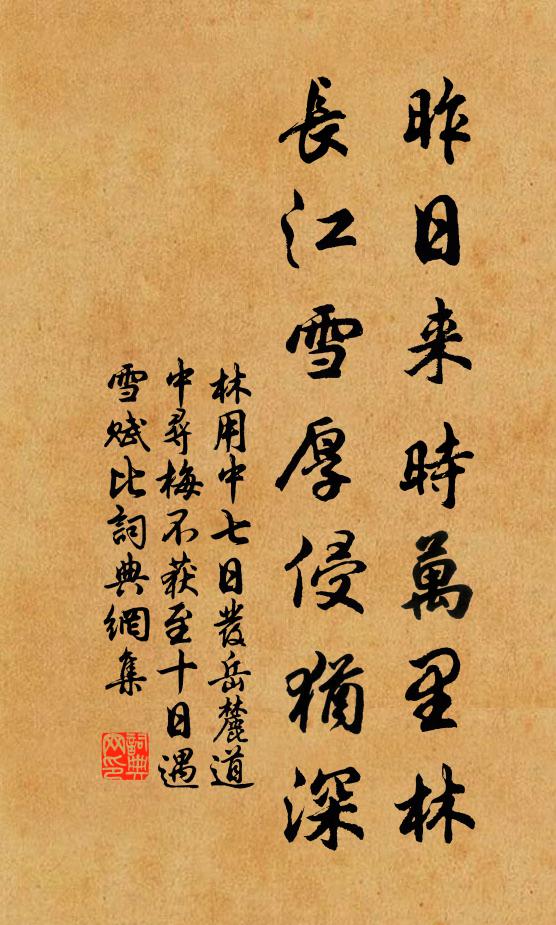 昨日来時萬里林
長江雪厚侵猶深
林用中七日發岳麓道
中尋梅不获至十日遇
雪賦比詞典網集
詞典
网印